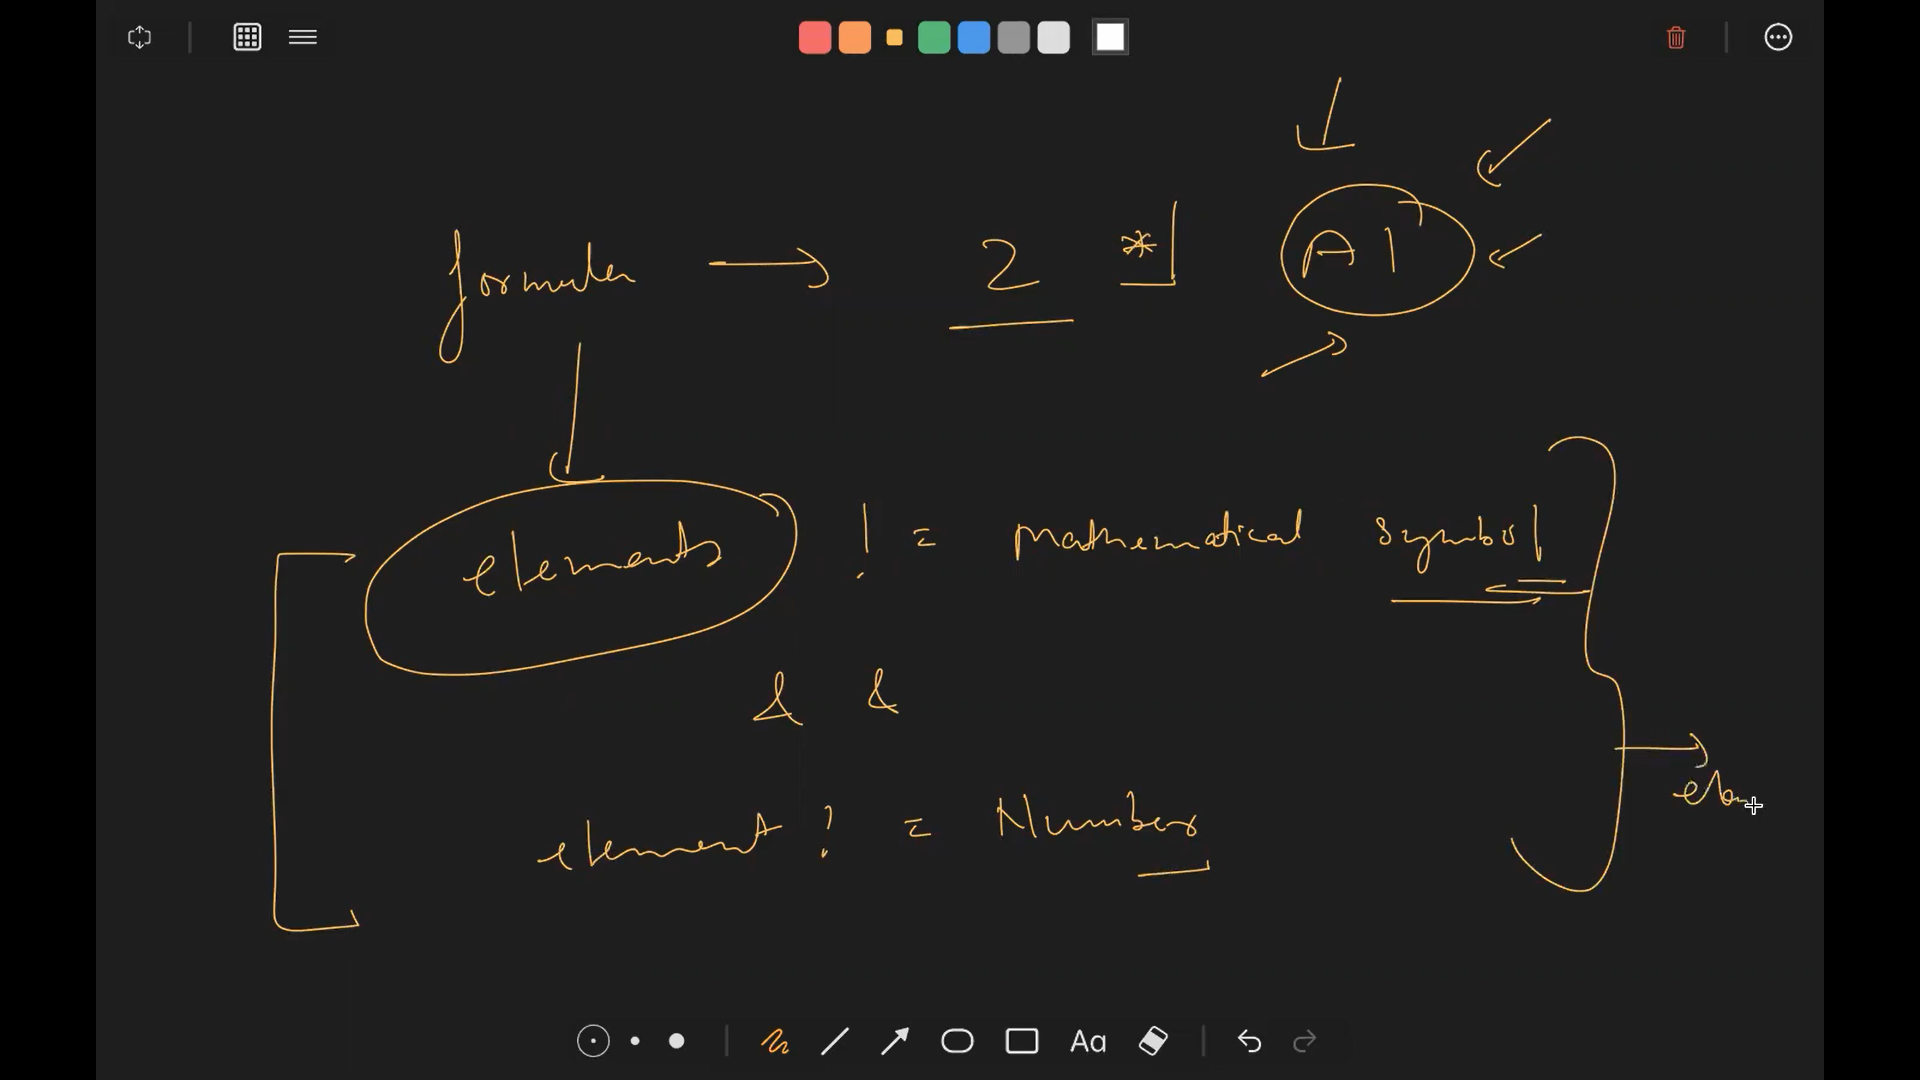 formula → 2 * A1
elements != mathematical symbol
& &
element != Number
Aa